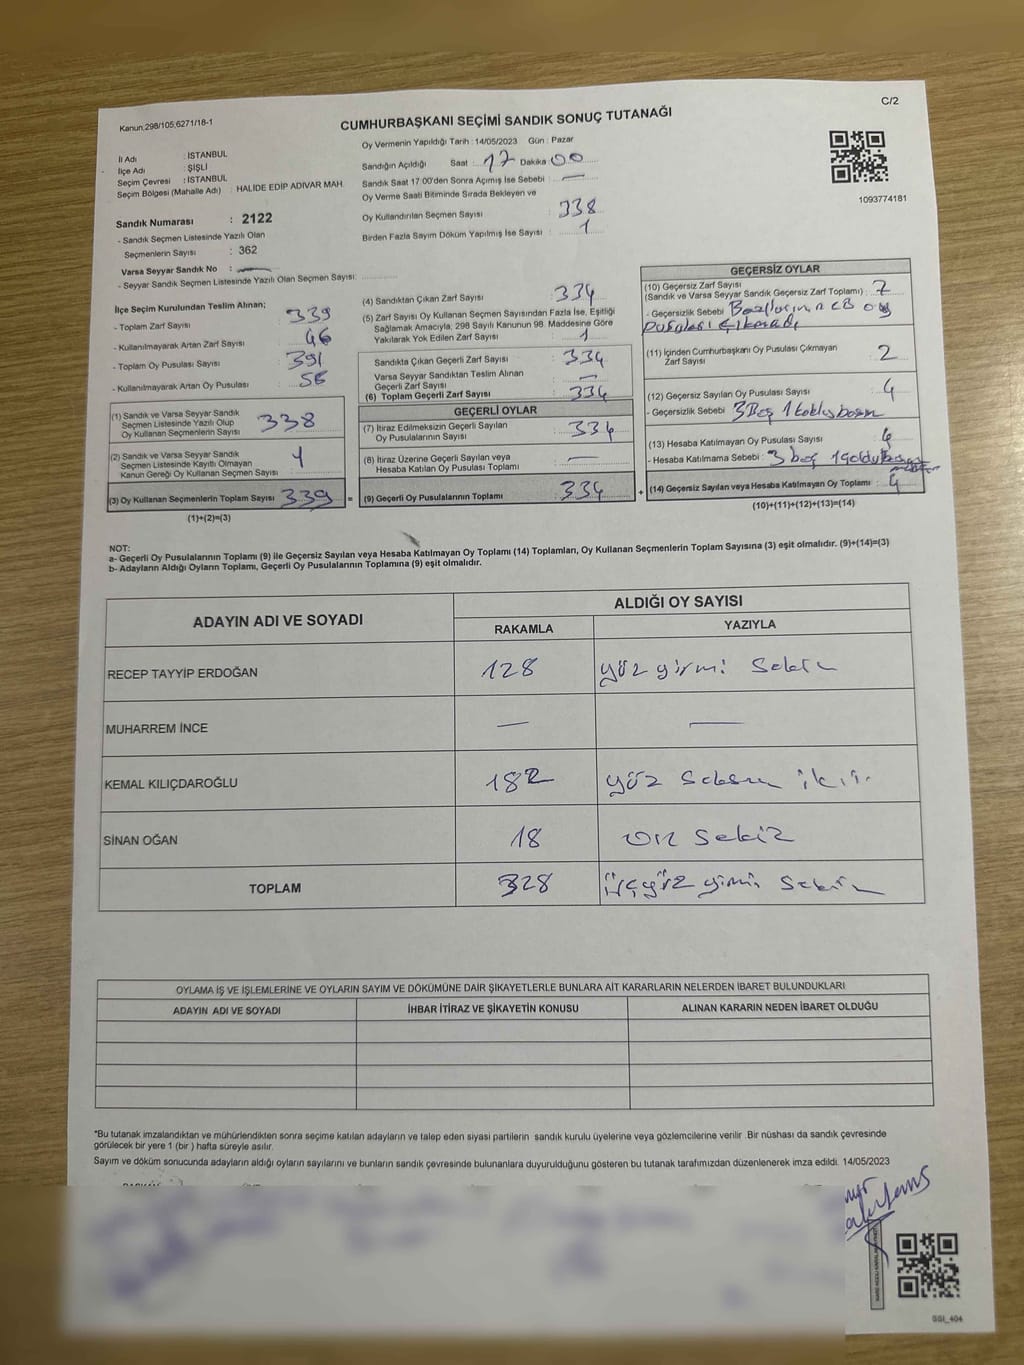 C/2
Kanun,298/105,6271/18-1
CUMHURBAŞKANI SEÇİMİ SANDIK SONUÇ TUTANAĞI
İl Adı : İSTANBUL
İlçe Adı : ŞİŞLİ
Seçim Çevresi : İSTANBUL
Seçim Bölgesi (Mahalle Adı) : HALİDE EDİP ADIVAR MAH.
Sandık Numarası : 2122
- Sandık Seçmen Listesinde Yazılı Olan
Seçmenlerin Sayısı : 362
Varsa Seyyar Sandık No :
- Seyyar Sandık Seçmen Listesinde Yazılı Olan Seçmen Sayısı:
Oy Vermenin Yapıldığı Tarih : 14/05/2023 Gün : Pazar
Sandığın Açıldığı Saat : 17 Dakika 00
Sandık Saat 17:00'den Sonra Açımış İse Sebebi : —
Oy Verme Saati Bitiminde Sırada Bekleyen ve
Oy Kullandırılan Seçmen Sayısı : 338
Birden Fazla Sayım Döküm Yapılmış İse Sayısı : 1
1093774181
İlçe Seçim Kurulundan Teslim Alınan;
- Toplam Zarf Sayısı : 339
- Kullanılmayarak Artan Zarf Sayısı : 46
- Toplam Oy Pusulası Sayısı : 391
- Kullanılmayarak Artan Oy Pusulası : 58
(1) Sandık ve Varsa Seyyar Sandık
Seçmen Listesinde Yazılı Olup
Oy Kullanan Seçmenlerin Sayısı 338
(2) Sandık ve Varsa Seyyar Sandık
Seçmen Listesinde Kayıtlı Olmayan
Kanun Gereği Oy Kullanan Seçmen Sayısı : 1
(3) Oy Kullanan Seçmenlerin Toplam Sayısı 339 =
(1)+(2)=(3)
(4) Sandıktan Çıkan Zarf Sayısı : 334
(5) Zarf Sayısı Oy Kullanan Seçmen Sayısından Fazla İse, Eşitliği
Sağlamak Amacıyla, 298 Sayılı Kanunun 98. Maddesine Göre
Yakılarak Yok Edilen Zarf Sayısı : 1
Sandıkta Çıkan Geçerli Zarf Sayısı : 334
Varsa Seyyar Sandıktan Teslim Alınan
Geçerli Zarf Sayısı : —
(6) Toplam Geçerli Zarf Sayısı : 334
GEÇERLİ OYLAR
(7) İtiraz Edilmeksizin Geçerli Sayılan
Oy Pusulalarının Sayısı : 334
(8) İtiraz Üzerine Geçerli Sayılan veya
Hesaba Katılan Oy Pusulası Toplamı : —
(9) Geçerli Oy Pusulalarının Toplamı : 334 +
GEÇERSİZ OYLAR
(10) Geçersiz Zarf Sayısı
(Sandık ve Varsa Seyyar Sandık Geçersiz Zarf Toplamı) : 7
- Geçersizlik Sebebi : oy
pusulası çıkmadı
(11) İçinden Cumhurbaşkanı Oy Pusulası Çıkmayan
Zarf Sayısı : 2
(12) Geçersiz Sayılan Oy Pusulası Sayısı : 4
- Geçersizlik Sebebi : 3 Boş 1
(13) Hesaba Katılmayan Oy Pusulası Sayısı : 4
- Hesaba Katılmama Sebebi : 3 boş 1
(14) Geçersiz Sayılan veya Hesaba Katılmayan Oy Toplamı : 4
(10)+(11)+(12)+(13)=(14)
NOT:
a- Geçerli Oy Pusulalarının Toplamı (9) ile Geçersiz Sayılan veya Hesaba Katılmayan Oy Toplamı (14) Toplamları, Oy Kullanan Seçmenlerin Toplam Sayısına (3) eşit olmalıdır. (9)+(14)=(3)
b- Adayların Aldığı Oyların Toplamı, Geçerli Oy Pusulalarının Toplamına (9) eşit olmalıdır.
ADAYIN ADI VE SOYADI
ALDIĞI OY SAYISI
RAKAMLA YAZIYLA
RECEP TAYYİP ERDOĞAN 128 yüz yirmi sekiz
MUHARREM İNCE — —
KEMAL KILIÇDAROĞLU 182 yüz seksen iki
SİNAN OĞAN 18 on sekiz
TOPLAM 328 üçyüz yirmi sekiz
OYLAMA İŞ VE İŞLEMLERİNE VE OYLARIN SAYIM VE DÖKÜMÜNE DAİR ŞİKAYETLERLE BUNLARA AİT KARARLARIN NELERDEN İBARET BULUNDUKLARI
ADAYIN ADI VE SOYADI İHBAR İTİRAZ VE ŞİKAYETİN KONUSU ALINAN KARARIN NEDEN İBARET OLDUĞU
*Bu tutanak imzalandıktan ve mühürlendikten sonra seçime katılan adayların ve talep eden siyasi partilerin sandık kurulu üyelerine veya gözlemcilerine verilir .Bir nüshası da sandık çevresinde
görülecek bir yere 1 (bir ) hafta süreyle asılır.
Sayım ve döküm sonucunda adayların aldığı oyların sayılarını ve bunların sandık çevresinde bulunanlara duyurulduğunu gösteren bu tutanak tarafımızdan düzenlenerek imza edildi. 14/05/2023
GGI_404